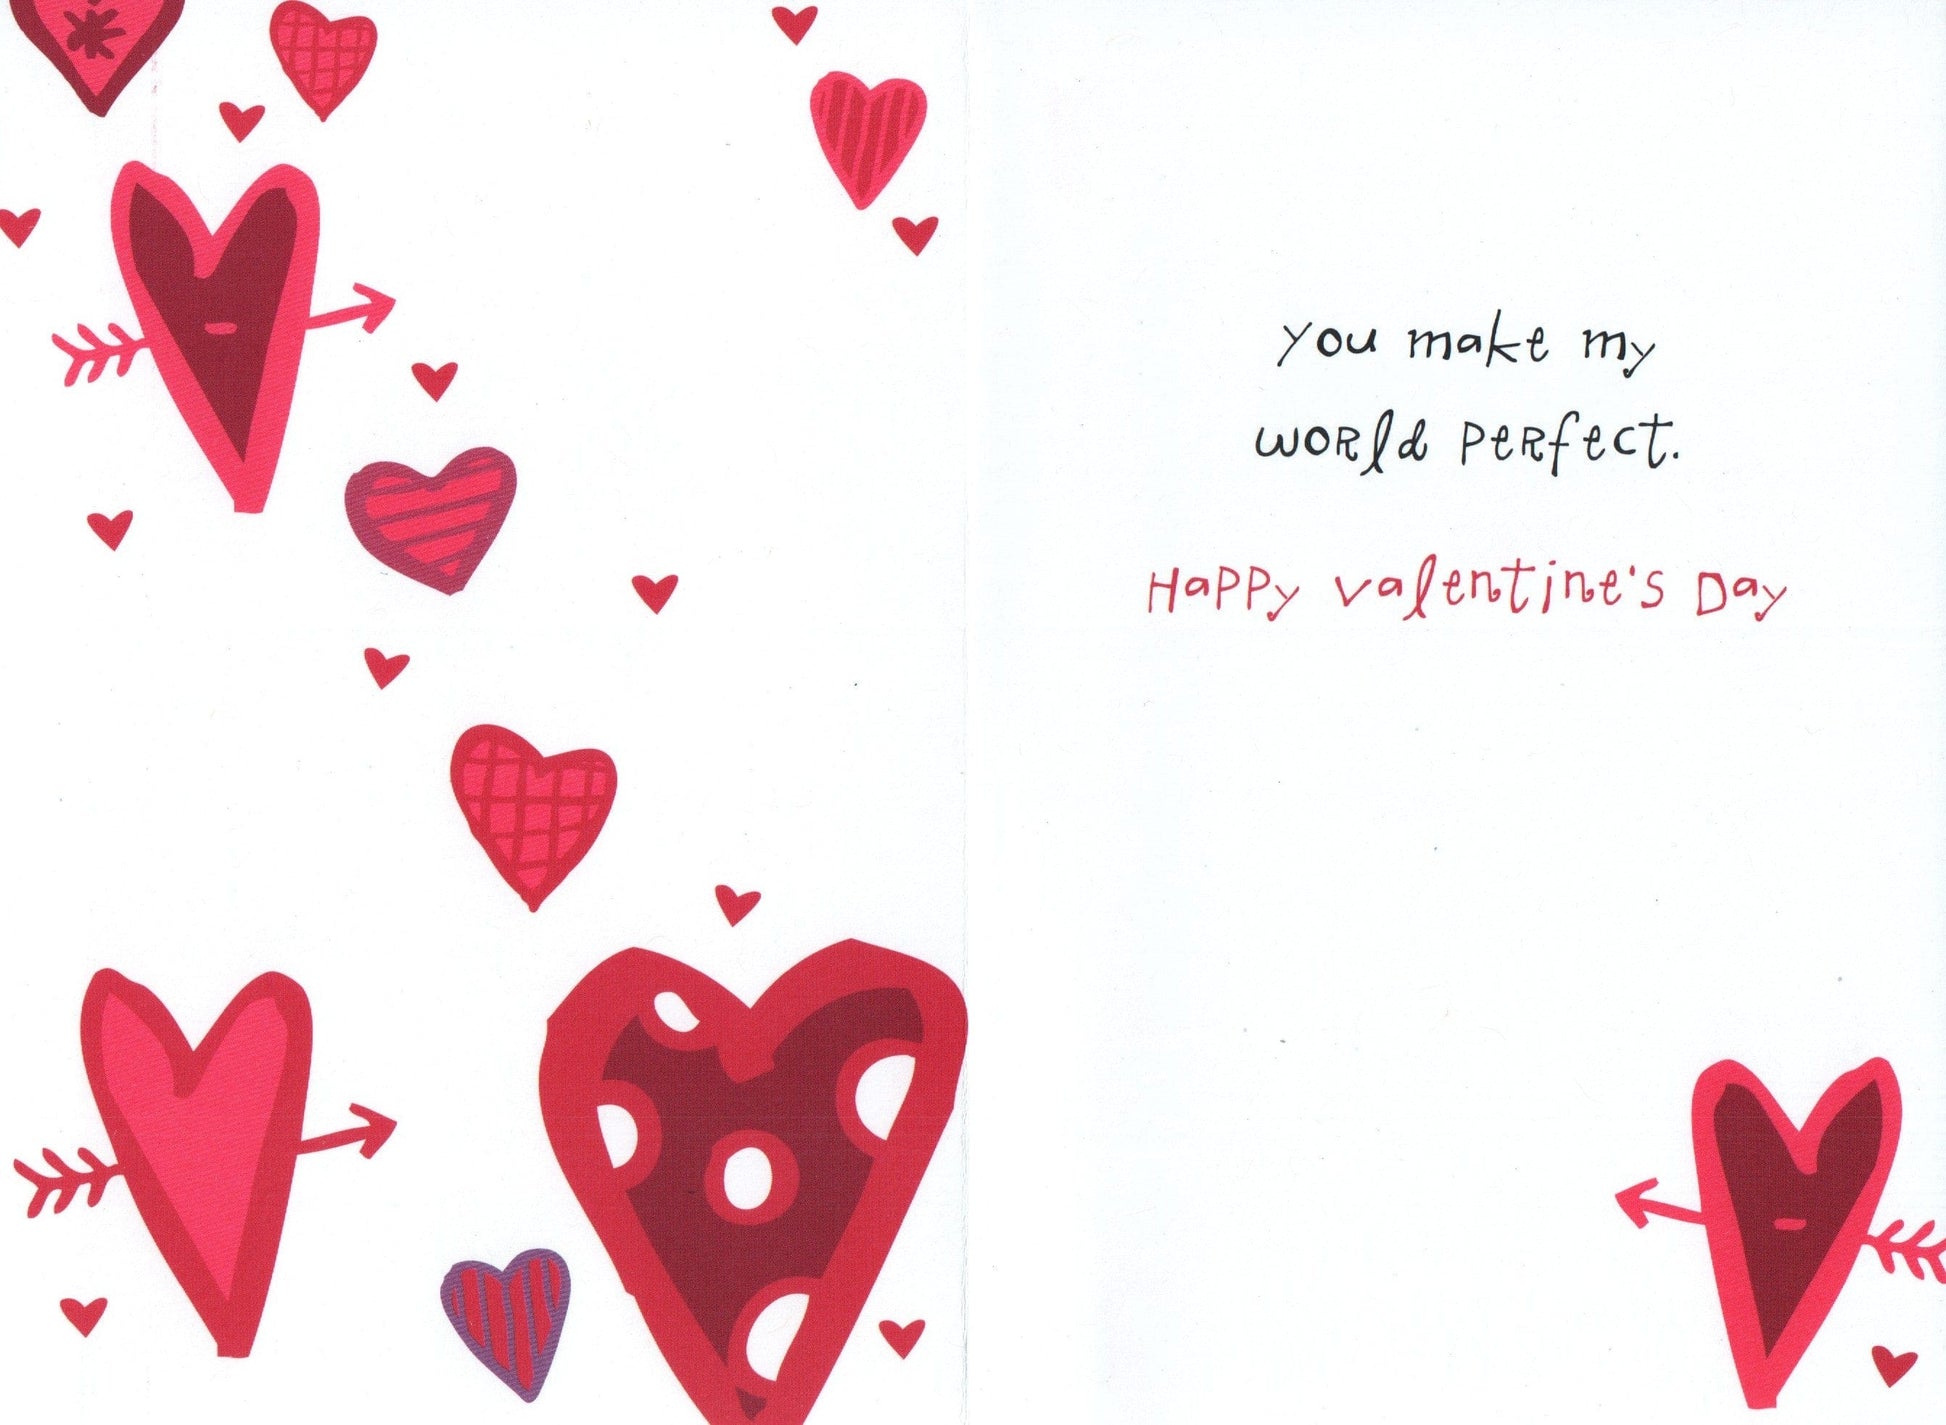 you make my
world perfect.
Happy Valentine's Day